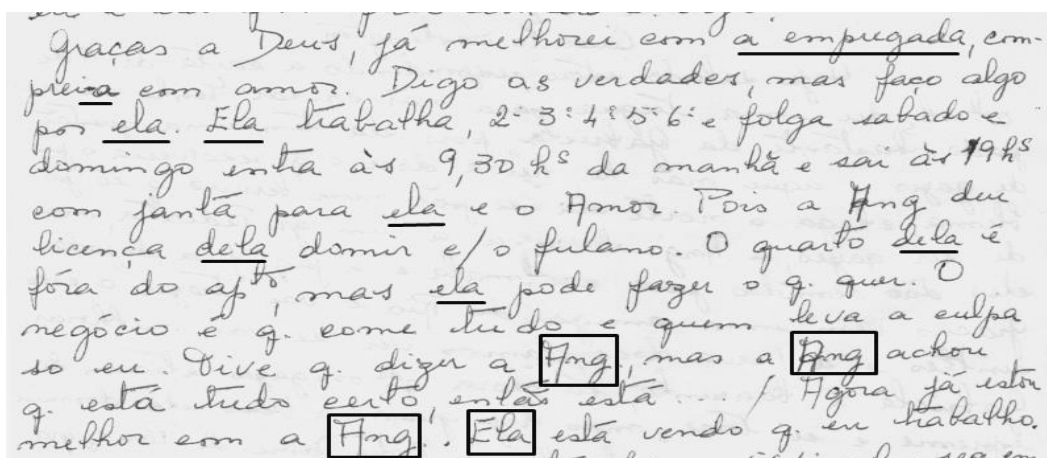 Graças a Deus, já melhorei com a empregada, com-
preia com amor. Digo as verdades, mas faço algo
por ela. Ela trabalha, 2ª 3ª 4ª 5ª 6ª e folga sabado e
domingo entra às 9,30 hs da manhã e sai às 19 hs
com janta para ela e o Amor. Pois a Ang deu
licença dela domir c/ o fulano. O quarto dela é
fóra do aptº, mas ela pode fazer o q. quer. O
negócio é q. come tudo e quem leva a culpa
so eu. Tive q. dizer a Ang, mas a Ang achou
q. está tudo certo, então está... / Agora já estou
melhor com a Ang.. Ela está vendo q. eu trabalho.